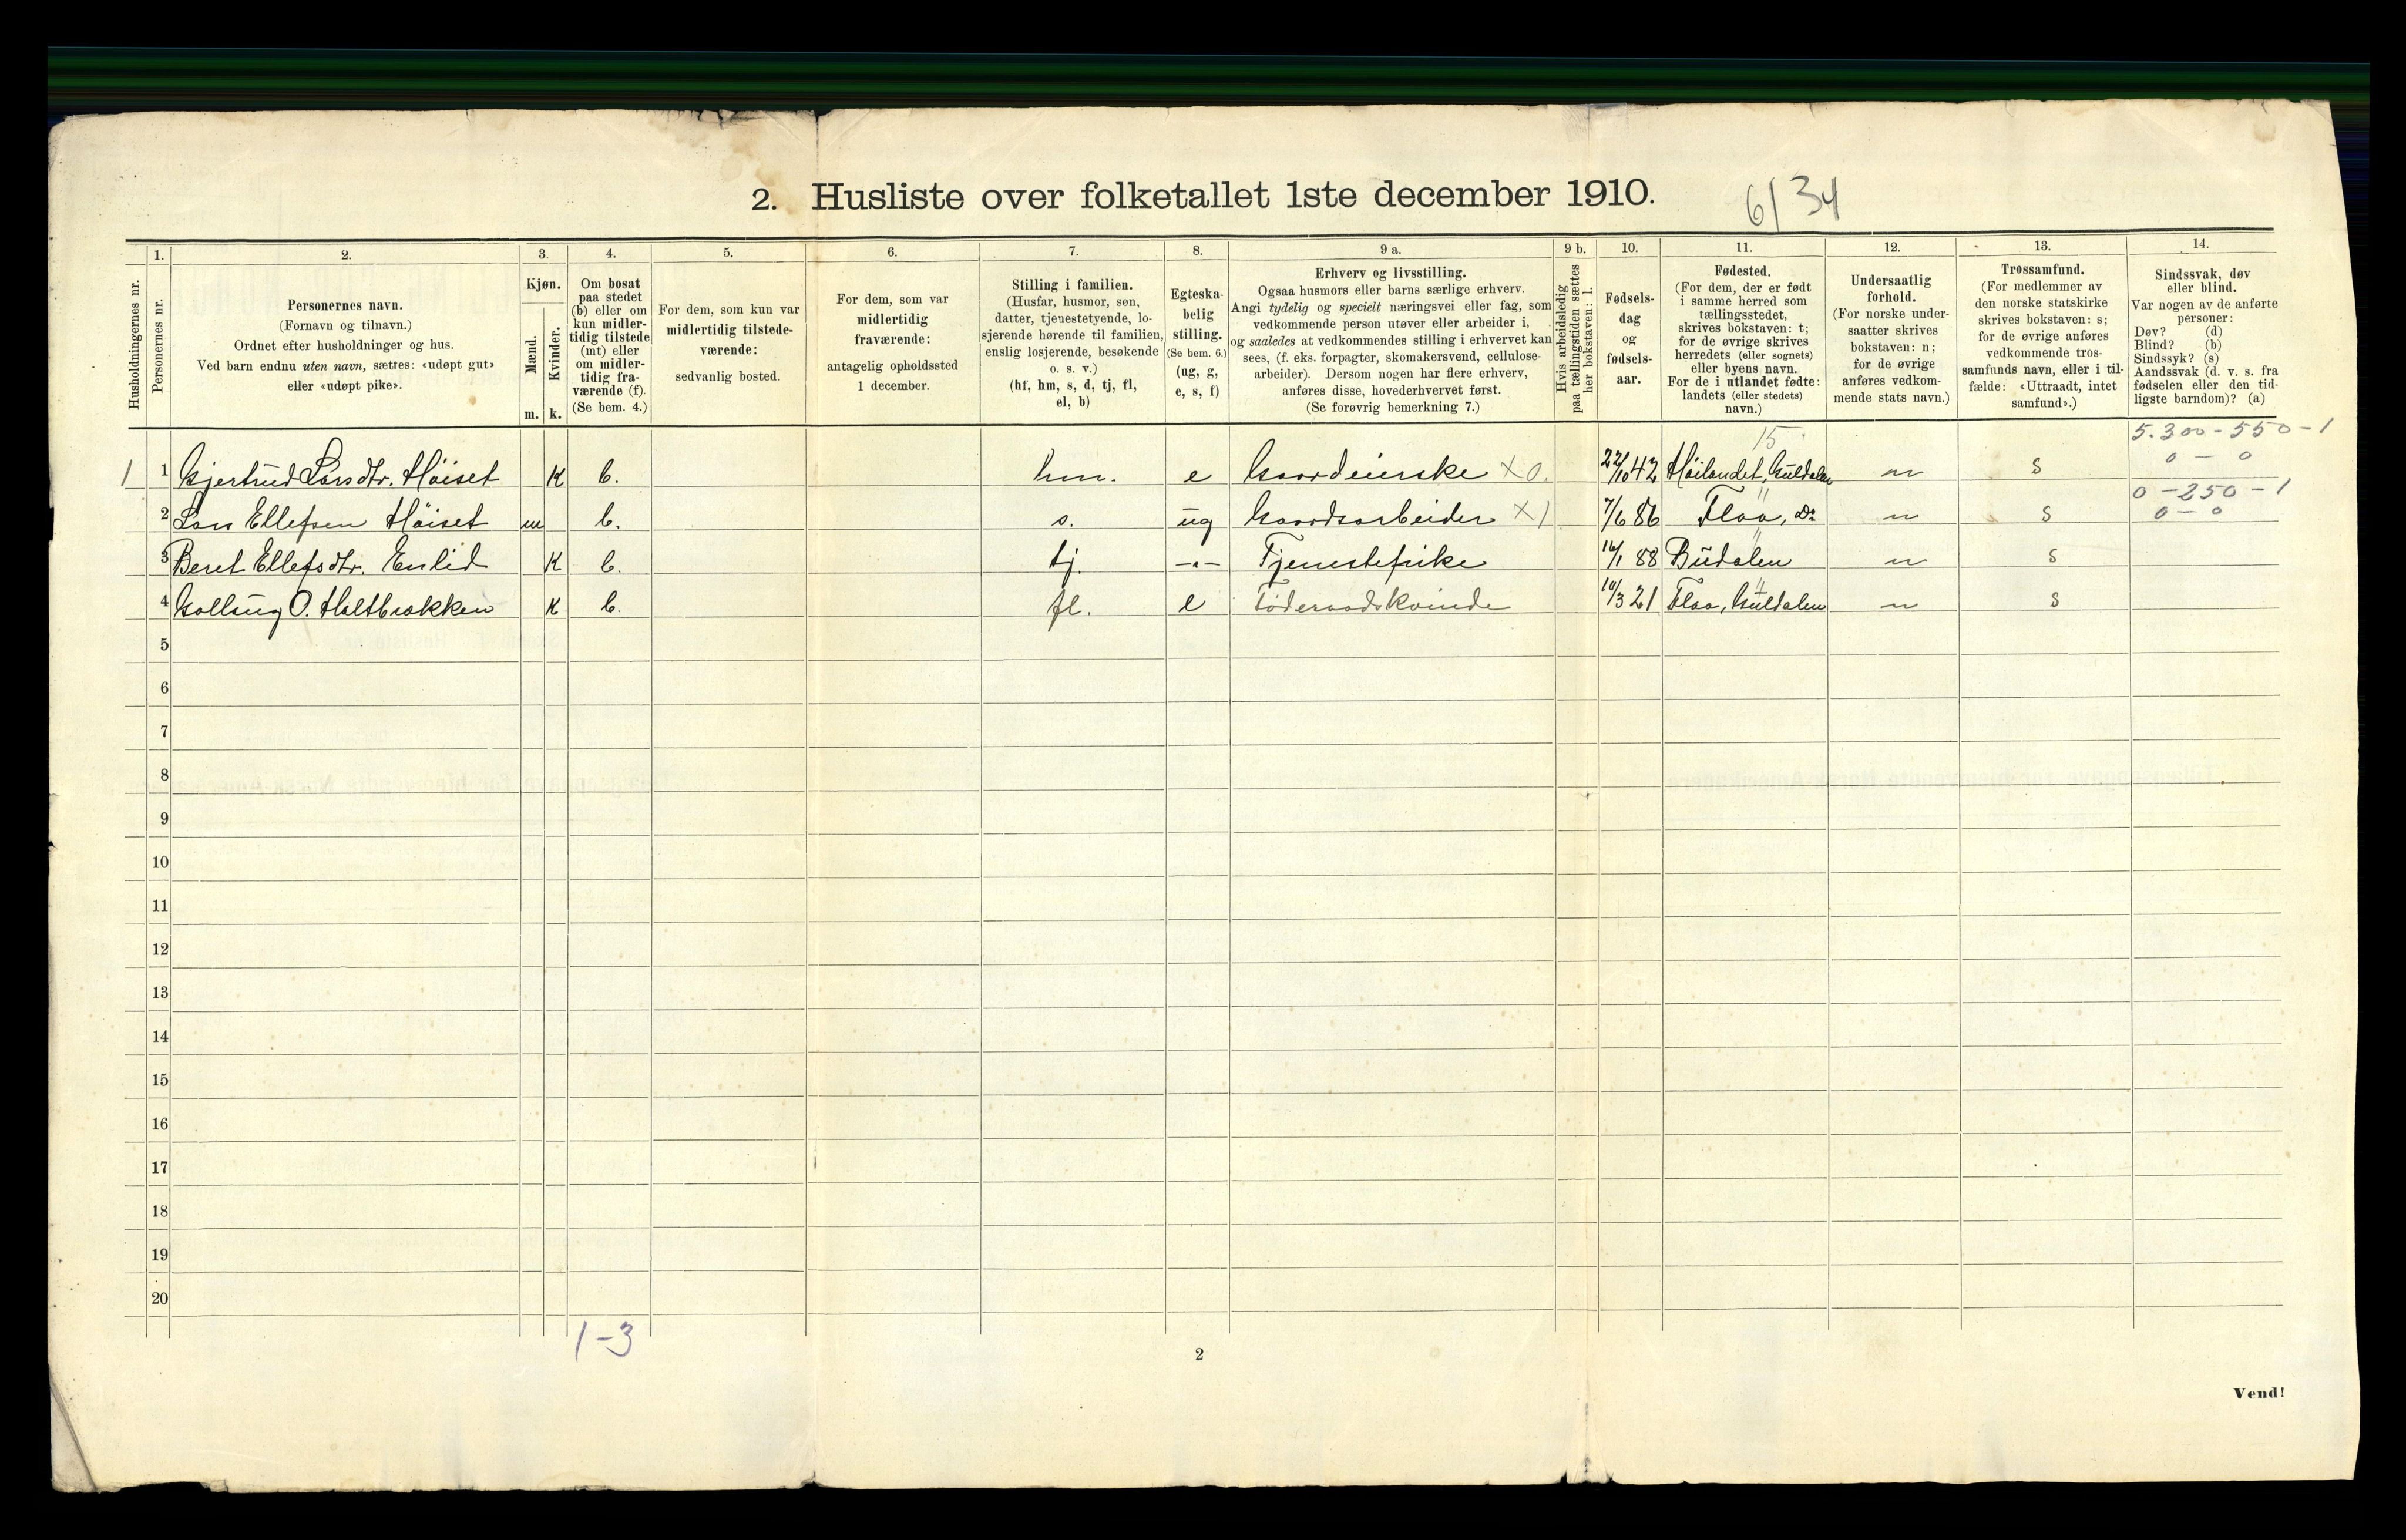 2. Husliste over folketallet 1ste december 1910.
6/34
Husholdningernes nr.
1.
Personernes nr.
2.
Personernes navn.
(Fornavn og tilnavn.)
Ordnet efter husholdninger og hus.
Ved barn endnu uten navn, sættes: «udøpt gut»
eller «udøpt pike».
3.
Kjøn.
Mænd.
Kvinder.
m. k.
4.
Om bosat
paa stedet
(b) eller om
kun midler-
tidig tilstede
(mt) eller
om midler-
tidig fra-
værende (f).
(Se bem. 4.)
5.
For dem, som kun var
midlertidig tilstede-
værende:
sedvanlig bosted.
6.
For dem, som var
midlertidig
fraværende:
antagelig opholdssted
1 december.
7.
Stilling i familien.
(Husfar, husmor, søn,
datter, tjenestetyende, lo-
sjerende hørende til familien,
enslig losjerende, besøkende
o. s. v.)
(hf, hm, s, d, tj, fl,
el, b)
8.
Egteska-
belig
stilling.
(Se bem. 6.)
(ug, g,
e, s, f)
9 a.
Erhverv og livsstilling.
Ogsaa husmors eller barns særlige erhverv.
Angi tydelig og specielt næringsvei eller fag, som
vedkommende person utøver eller arbeider i,
og saaledes at vedkommendes stilling i erhvervet kan
sees, (f. eks. forpagter, skomakersvend, cellulose-
arbeider). Dersom nogen har flere erhverv,
anføres disse, hovederhvervet først.
(Se forøvrig bemerkning 7.)
9 b.
Hvis arbeidsledig
paa tællingstiden sættes
her bokstaven: l.
10.
Fødsels-
dag
og
fødsels-
aar.
11.
Fødested.
(For dem, der er født
i samme herred som
tællingsstedet,
skrives bokstaven: t;
for de øvrige skrives
herredets (eller sognets)
eller byens navn.
For de i utlandet fødte:
landets (eller stedets)
navn.)
12.
Undersaatlig
forhold.
(For norske under-
saatter skrives
bokstaven: n;
for de øvrige
anføres vedkom-
mende stats navn.)
13.
Trossamfund.
(For medlemmer av
den norske statskirke
skrives bokstaven: s;
for de øvrige anføres
vedkommende tros-
samfunds navn, eller i til-
fælde: «Uttraadt, intet
samfund».)
14.
Sindssvak, døv
eller blind.
Var nogen av de anførte
personer:
Døv? (d)
Blind? (b)
Sindssyk? (s)
Aandssvak (d. v. s. fra
fødselen eller den tid-
ligste barndom)? (a)
15
5.300-550-1
1 1 Gjertrud Larsdtr. Høiset K b. hm. e Gaardeierske X 0. 22/10 42 Høilandet, Guldalen n s 0 - 0
0-250-1
2 Lars Ellefsen Høiset m b. s. ug Gaardsarbeider X 1 7/6 86 Flaa, do n s 0 - 0
3 Beret Ellefsdtr. Enlid K b. tj. -„- Tjenestepike 16/1 88 Budalen n s
4 O. Holtbrækken K b. fl. e Føderaadskvinde 10/3 21 Flaa, Guldalen n s
5
6
7
8
9
10
11
12
13
14
15
16
17
18
19
20
1-3
2
Vend!